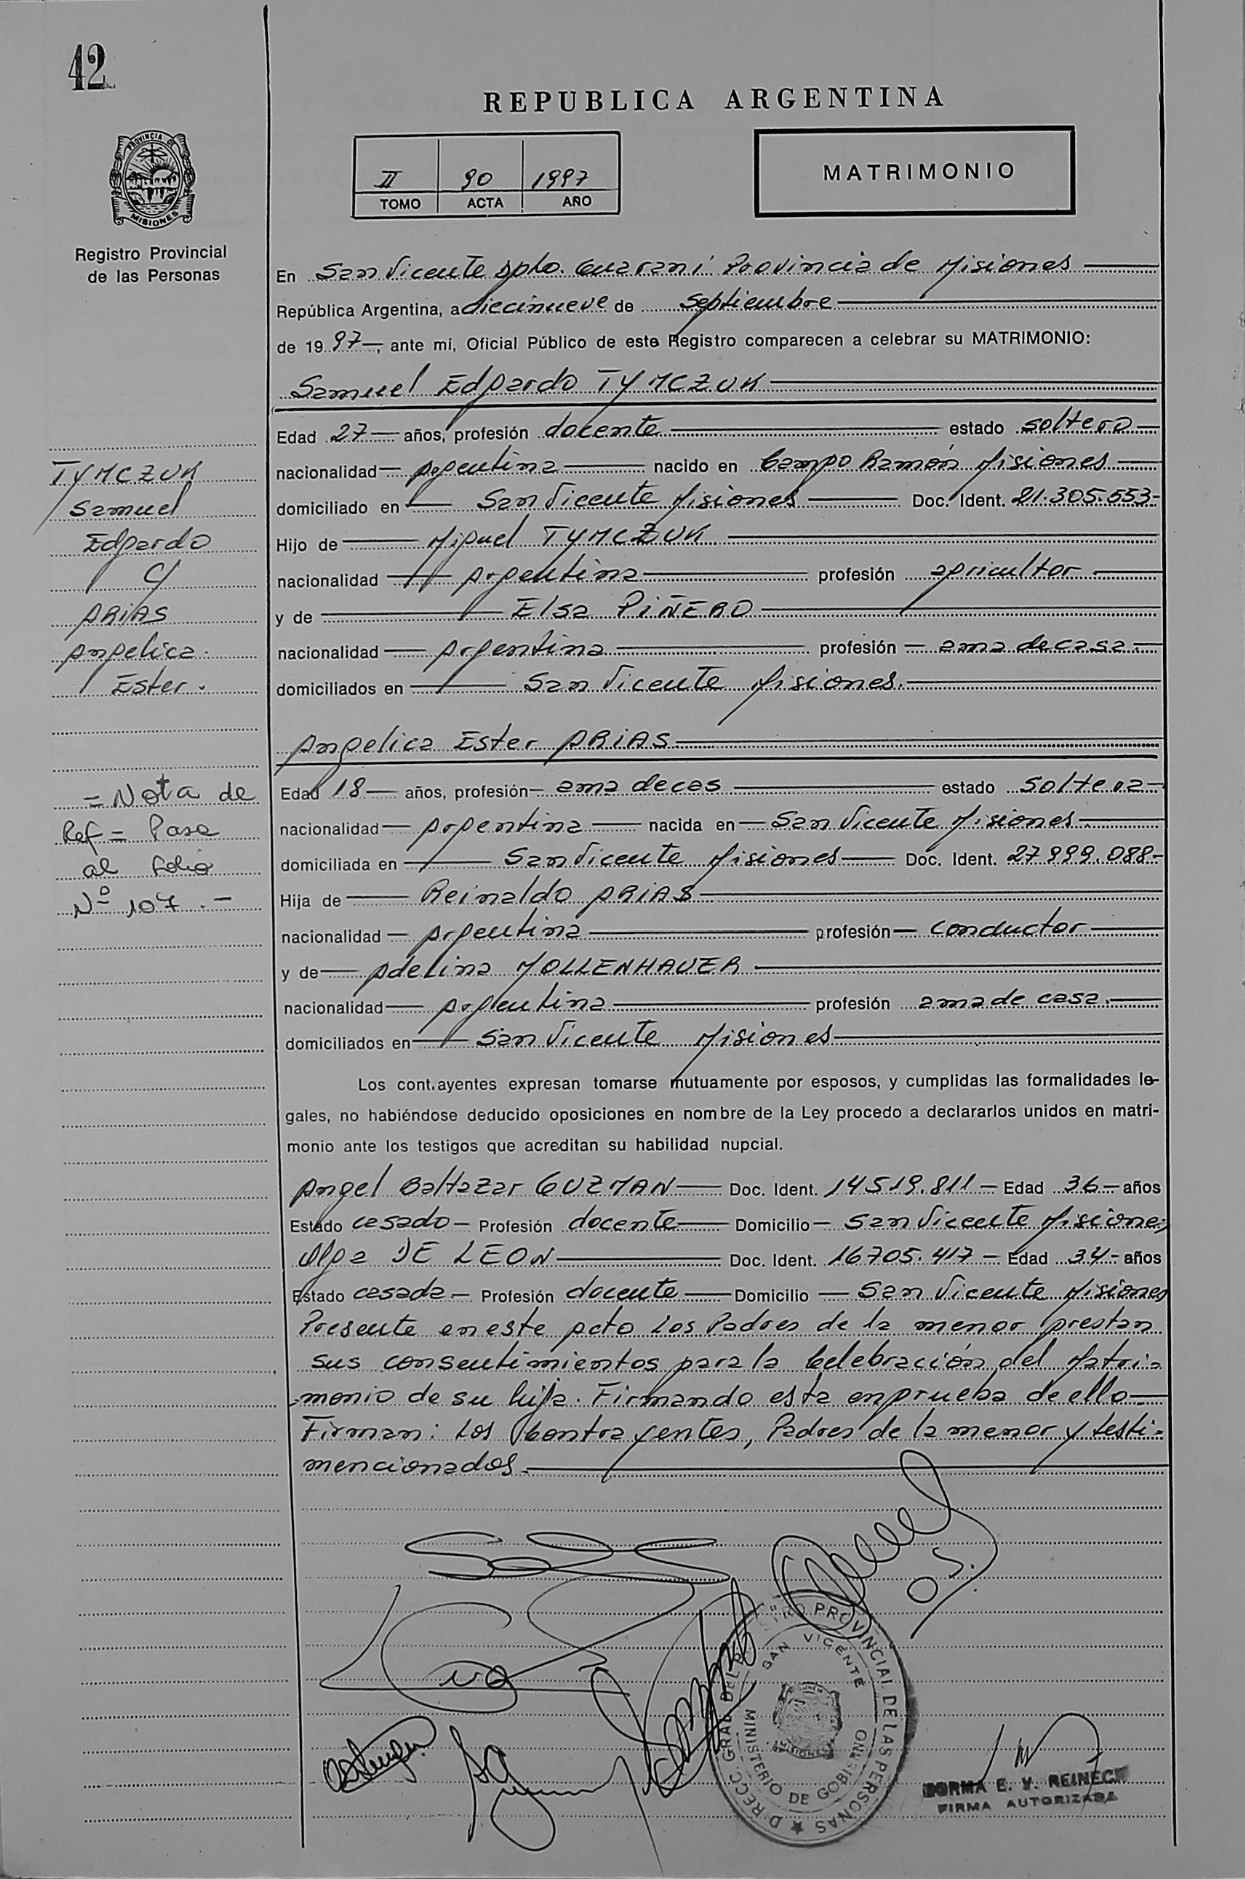 42
REPUBLICA ARGENTINA
II 90 1997
TOMO ACTA AÑO
MATRIMONIO
PROVINCIA DE
MISIONES
Registro Provincial
de las Personas
En San Vicente Dpto. Guaraní Provincia de Misiones
República Argentina, a diecinueve de septiembre
de 19 97, ante mí, Oficial Público de este Registro comparecen a celebrar su MATRIMONIO:
Samuel Edgardo TYMCZUK
Edad 27 años, profesión docente estado soltero
nacionalidad argentina nacido en Campo Ramón Misiones
domiciliado en San Vicente Misiones Doc. Ident. 21.305.553
Hijo de Miguel TYMCZUK
nacionalidad Argentina profesión agricultor
y de Elsa PIÑERO
nacionalidad Argentina profesión ama de casa
domiciliados en San Vicente Misiones.
TYMCZUK
Samuel
Edgardo
C/
ARIAS
Angelica
Ester.
Angelica Ester ARIAS
Edad 18 años, profesión ama de cas estado soltera
nacionalidad Argentina nacida en San Vicente Misiones.
domiciliada en San Vicente Misiones Doc. Ident. 27.999.088
Hija de Reinaldo ARIAS
nacionalidad Argentina profesión conductor
y de Adelina MOLLENHAUER
nacionalidad Argentina profesión ama de casa.
domiciliados en San Vicente Misiones
= Nota de
Ref = Pasa
al folio
Nº 107.-
Los cont.ayentes expresan tomarse mutuamente por esposos, y cumplidas las formalidades le-
gales, no habiéndose deducido oposiciones en nombre de la Ley procedo a declararlos unidos en matri-
monio ante los testigos que acreditan su habilidad nupcial.
Angel Baltazar GUZMAN Doc. Ident. 14519.811 Edad 36 años
Estado casado Profesión docente Domicilio San Vicente Misiones
Olga DE LEON Doc. Ident. 16705.417 Edad 34 años
Estado casada Profesión docente Domicilio San Vicente Misiones
Presente en este acto los Padres de la menor prestan
sus consentimientos para la Celebración del Matri=
monio de su hija. Firmando esta en prueba de ello
Firman: Los Contrayentes, Padres de la menor y testi=
mencionados.
O.S.
DIRECC. GRAL. DEL REGISTRO PROVINCIAL DE LAS PERSONAS
SAN VICENTE
MINISTERIO DE GOBIERNO
MISIONES
NORMA E. V. REINECK
FIRMA AUTORIZADA